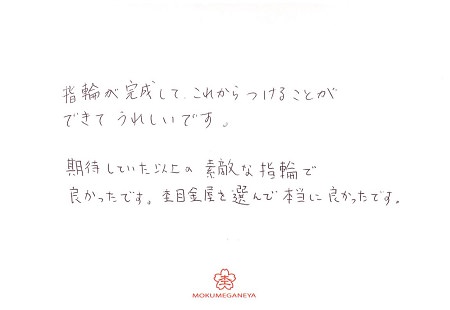 指輪が完成して、これからつけることが
できて うれしいです。
期待していた以上の 素敵な指輪で
良かったです。杢目金屋を選んで本当に良かったです。
杢
MOKUMEGANEYA